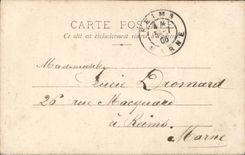 CARTE POSTALE
Ce côté est exclusivement réservé à l'adresse
REIMS
MARNE
Mademoiselle
Lucie Dromard
28 rue Macquart
à Reims
Marne